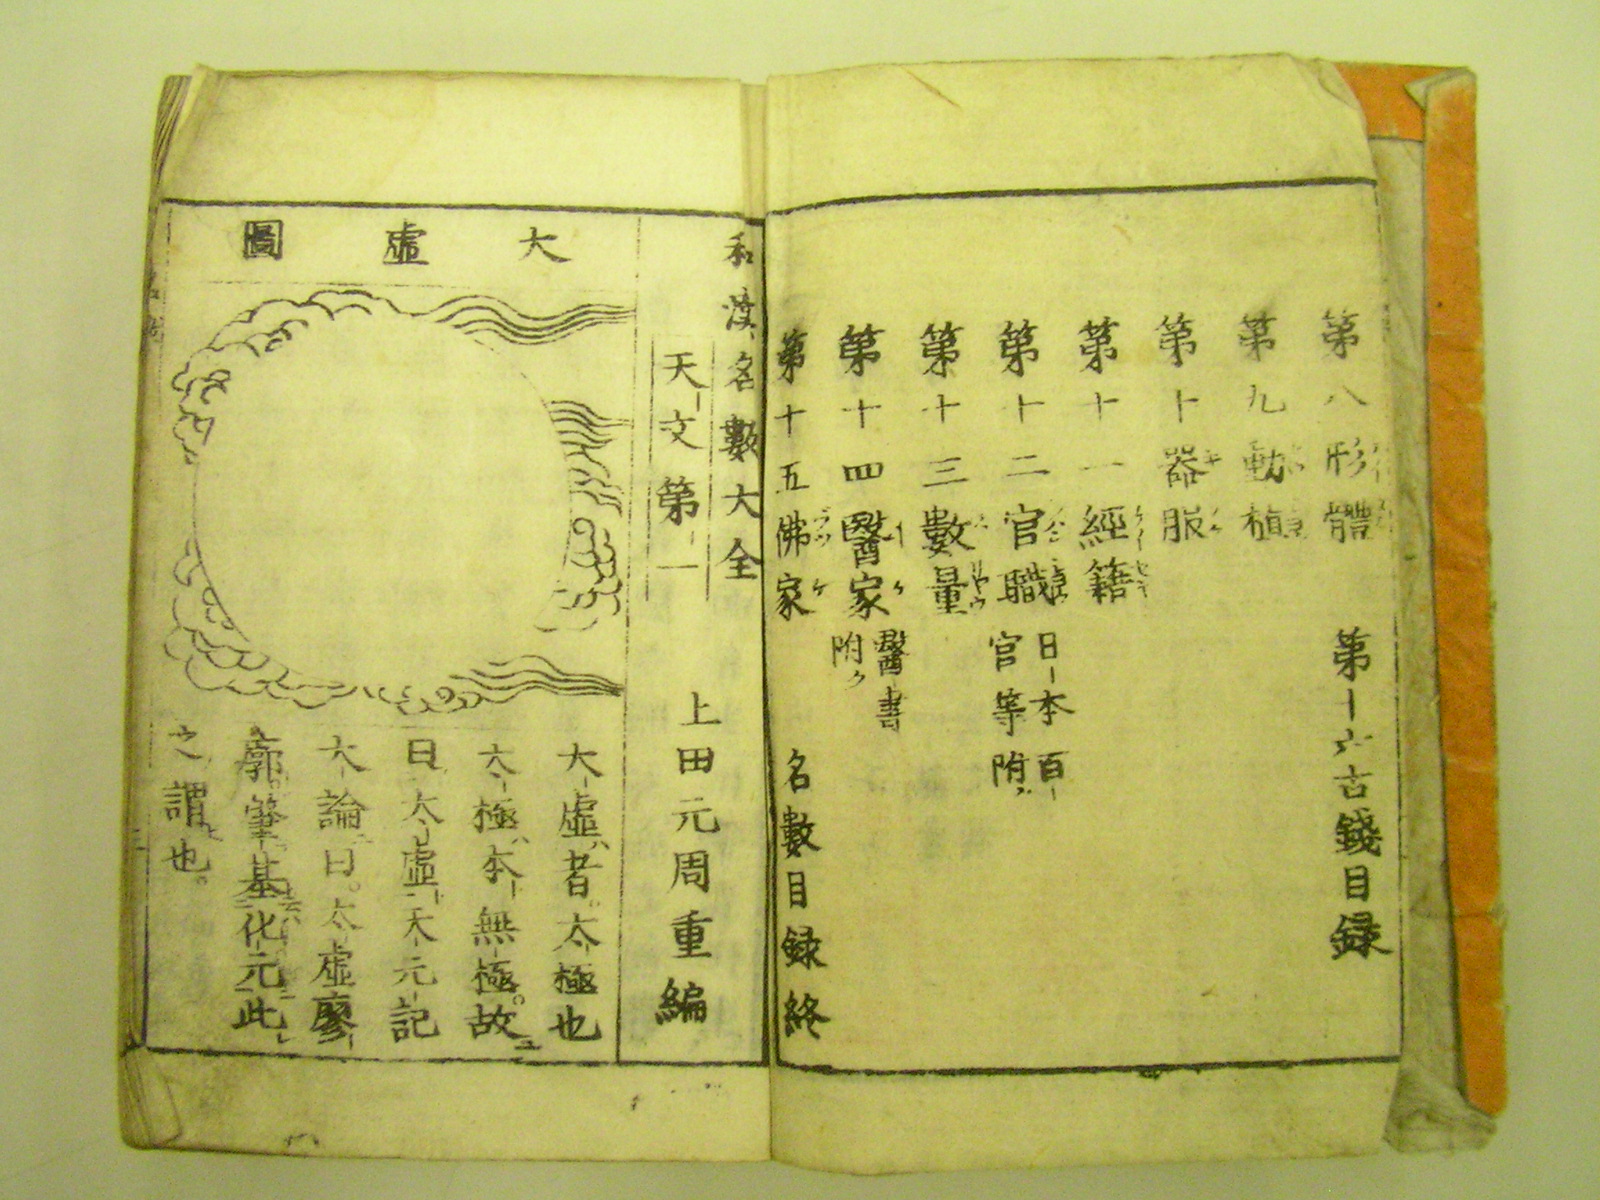 第八形體
第九動植
第十器服
第十一經籍
第十二官職 日本百官等附
第十三數量
第十四醫家 醫書附ク
第十五佛家
第十六古錢目録
名數目録終
和漢名數大全
天文第一
上田元周重編
大虛圖
大虛者太極也
太極本無極故
曰太虛天元記
大論曰太虛廖
廓肇基化元此
之謂也